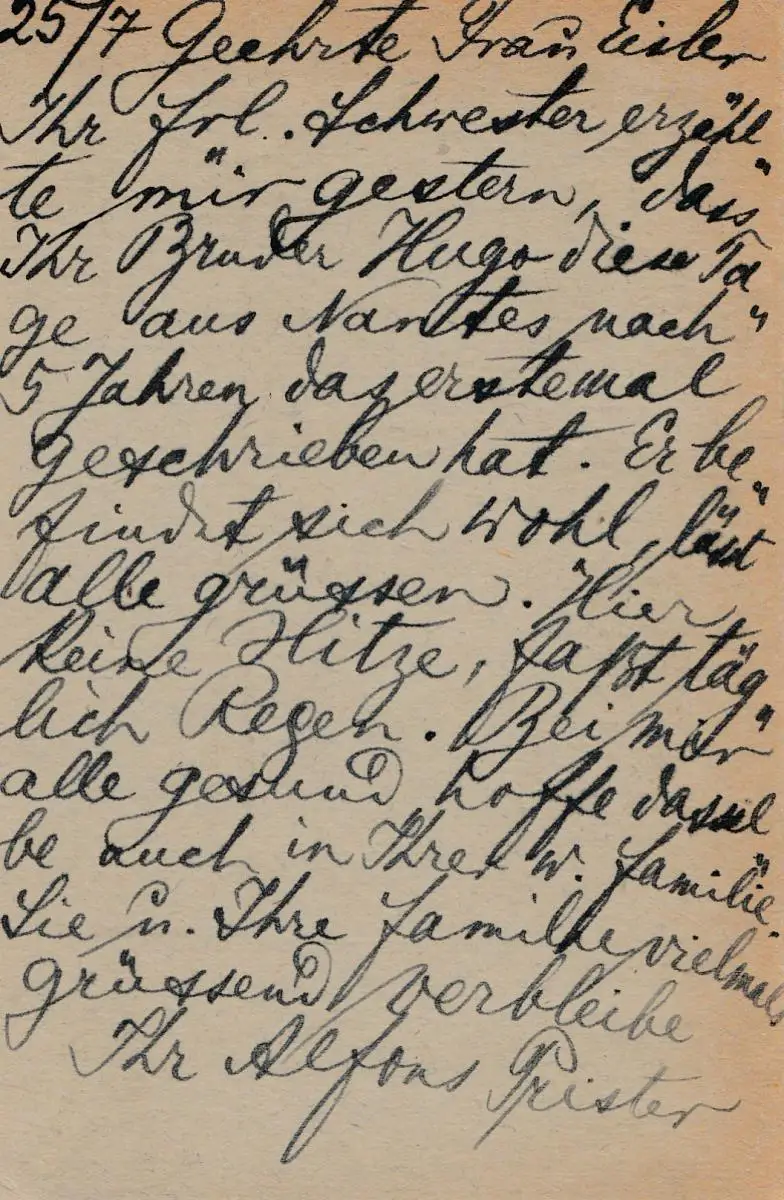 25/7 Geehrte Frau Eisler
Ihr Frl. Schwester erzähl"
te mir gestern, dass
Ihr Bruder Hugo diese Ta"
ge aus Nantes nach
5 Jahren das erstemal
geschrieben hat. Er be"
findet sich wohl, lässt
alle grüssen. Hier
keine Hitze, faßt täg"
lich Regen. Bei mir
alle gesund hoffe dassel"
be auch in Ihrer w. Familie.
Sie u. Ihre Familie vielmals
grüssend verbleibe
Ihr Alfons Prister